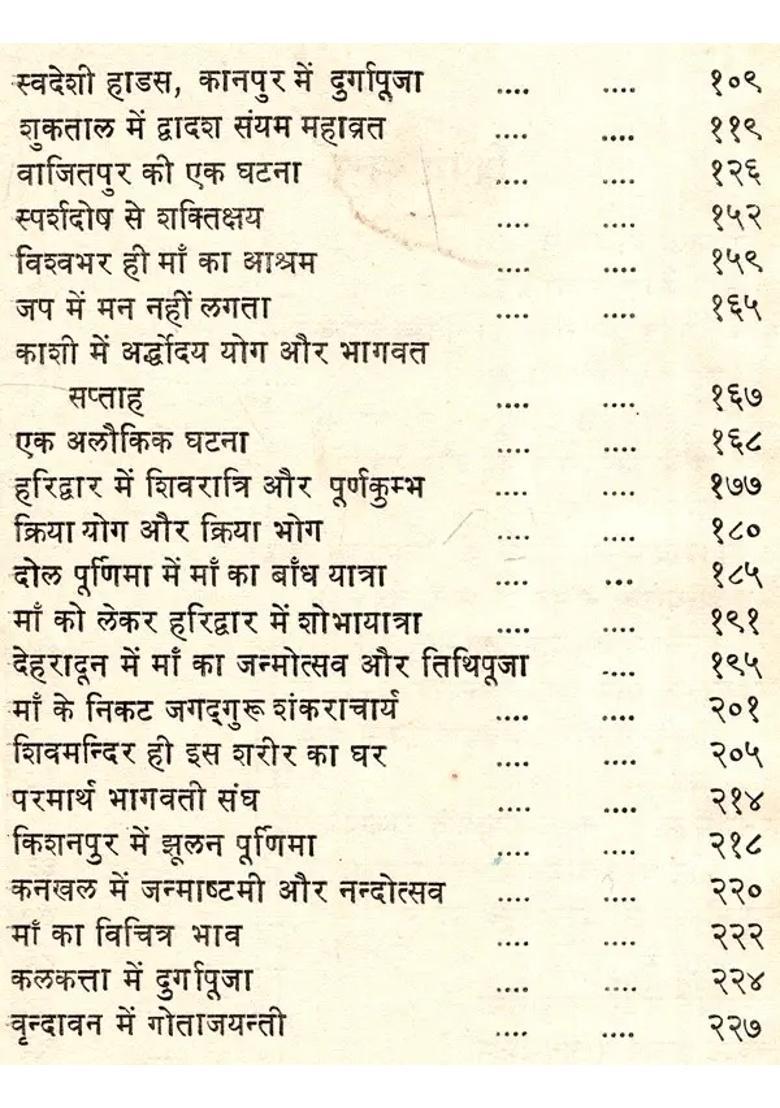 स्वदेशी हाडस, कानपुर में दुर्गापूजा .... .... १०९
शुकताल में द्वादश संयम महाव्रत .... .... ११९
वाजितपुर की एक घटना .... .... १२६
स्पर्शदोष से शक्तिक्षय .... .... १५२
विश्वभर ही माँ का आश्रम .... .... १५९
जप में मन नहीं लगता .... .... १६५
काशी में अर्द्धोदय योग और भागवत
सप्ताह .... .... १६७
एक अलौकिक घटना .... .... १६८
हरिद्वार में शिवरात्रि और पूर्णकुम्भ .... .... १७७
क्रिया योग और क्रिया भोग .... .... १८०
दोल पूर्णिमा में माँ का बाँध यात्रा .... ... १८५
माँ को लेकर हरिद्वार में शोभायात्रा .... .... १९१
देहरादून में माँ का जन्मोत्सव और तिथिपूजा .... १९५
माँ के निकट जगद्गुरू शंकराचार्य .... .... २०१
शिवमन्दिर ही इस शरीर का घर .... .... २०५
परमार्थ भागवती संघ .... .... २१४
किशनपुर में झूलन पूर्णिमा .... .... २१८
कनखल में जन्माष्टमी और नन्दोत्सव .... .... २२०
माँ का विचित्र भाव .... .... २२२
कलकत्ता में दुर्गापूजा .... .... २२४
वृन्दावन में गोताजयन्ती .... .... २२७